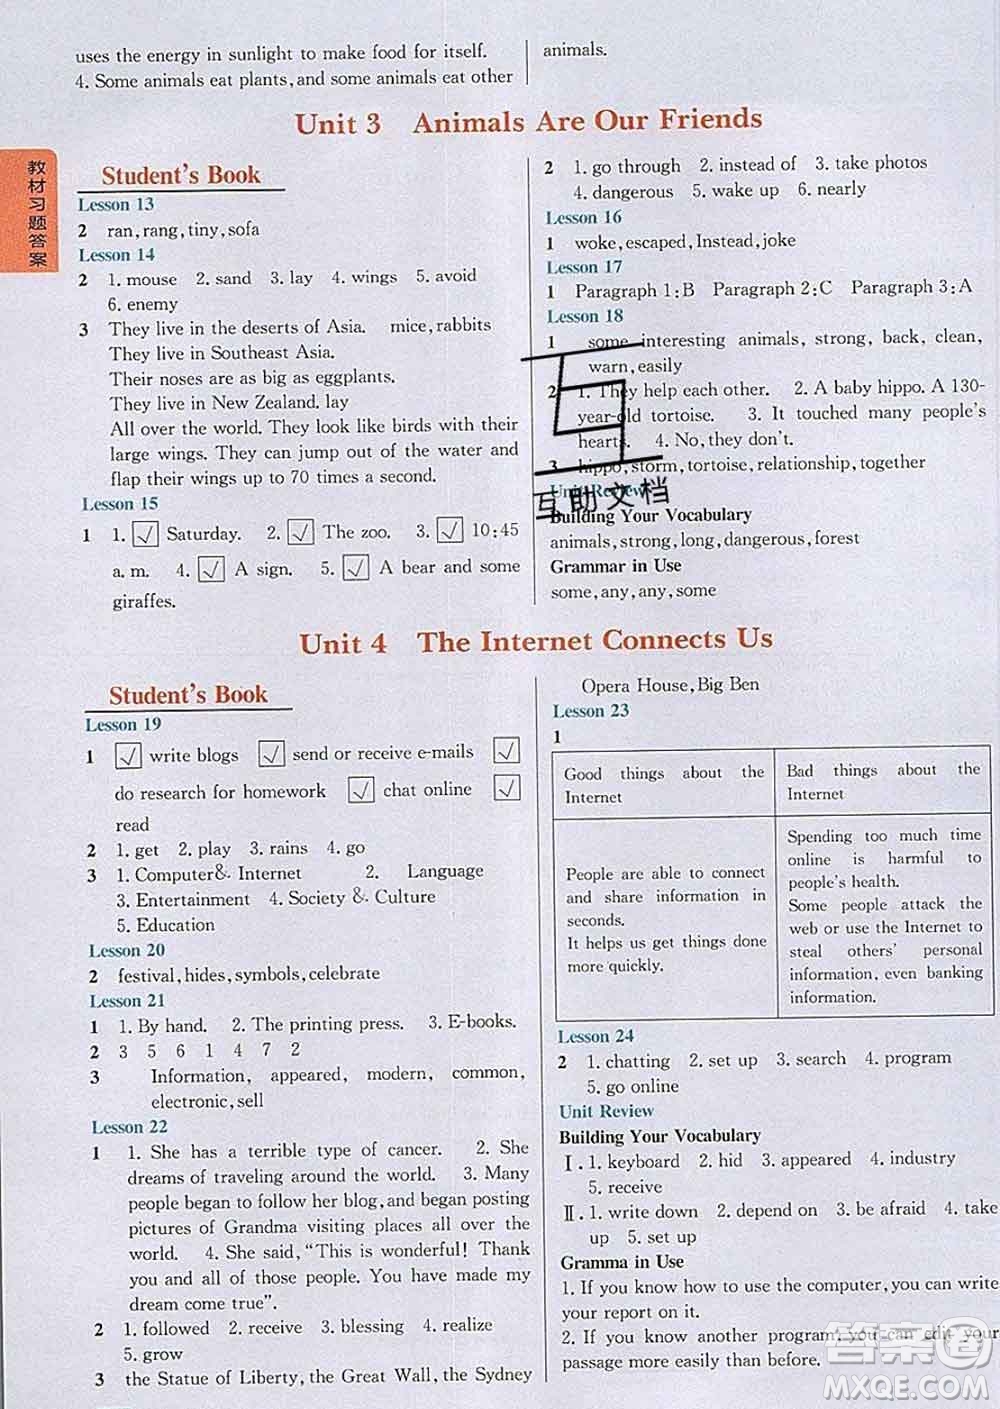 uses the energy in sunlight to make food for itself.
4. Some animals eat plants, and some animals eat other
animals.
Unit 3 Animals Are Our Friends
教材习题答案
Student's Book
Lesson 13
2 ran, rang, tiny, sofa
Lesson 14
2 1. mouse 2. sand 3. lay 4. wings 5. avoid
6. enemy
3 They live in the deserts of Asia. mice, rabbits
They live in Southeast Asia.
Their noses are as big as eggplants.
They live in New Zealand. lay
All over the world. They look like birds with their
large wings. They can jump out of the water and
flap their wings up to 70 times a second.
Lesson 15
1 1. √ Saturday. 2. √ The zoo. 3. √ 10:45
a. m. 4. √ A sign. 5. √ A bear and some
giraffes.
2 1. go through 2. instead of 3. take photos
4. dangerous 5. wake up 6. nearly
Lesson 16
1 woke, escaped, Instead, joke
Lesson 17
1 Paragraph 1:B Paragraph 2:C Paragraph 3:A
Lesson 18
1 some, interesting animals, strong, back, clean,
warn, easily
2 1. They help each other. 2. A baby hippo. A 130-
year-old tortoise. 3. It touched many people's
hearts. 4. No, they don't.
3 hippo, storm, tortoise, relationship, together
Unit Review
互助文档
Building Your Vocabulary
animals, strong, long, dangerous, forest
Grammar in Use
some, any, any, some
Unit 4 The Internet Connects Us
Student's Book
Lesson 19
1 √ write blogs √ send or receive e-mails √
do research for homework √ chat online √
read
2 1. get 2. play 3. rains 4. go
3 1. Computer & Internet 2. Language
3. Entertainment 4. Society & Culture
5. Education
Lesson 20
2 festival, hides, symbols, celebrate
Lesson 21
1 1. By hand. 2. The printing press. 3. E-books.
2 3 5 6 1 4 7 2
3 Information, appeared, modern, common,
electronic, sell
Lesson 22
1 1. She has a terrible type of cancer. 2. She
dreams of traveling around the world. 3. Many
people began to follow her blog, and began posting
pictures of Grandma visiting places all over the
world. 4. She said, "This is wonderful! Thank
you and all of those people. You have made my
dream come true".
2 1. followed 2. receive 3. blessing 4. realize
5. grow
3 the Statue of Liberty, the Great Wall, the Sydney
Opera House, Big Ben
Lesson 23
1
Good things about the
Internet
Bad things about the
Internet
People are able to connect
and share information in
seconds.
It helps us get things done
more quickly.
Spending too much time
online is harmful to
people's health.
Some people attack the
web or use the Internet to
steal others' personal
information, even banking
information.
Lesson 24
2 1. chatting 2. set up 3. search 4. program
5. go online
Unit Review
Building Your Vocabulary
Ⅰ. 1. keyboard 2. hid 3. appeared 4. industry
5. receive
Ⅱ. 1. write down 2. depend on 3. be afraid 4. take
up 5. set up
Gramma in Use
1. If you know how to use the computer, you can write
your report on it.
2. If you know another program, you can edit your
passage more easily than before.
答案圈
MXQE.COM